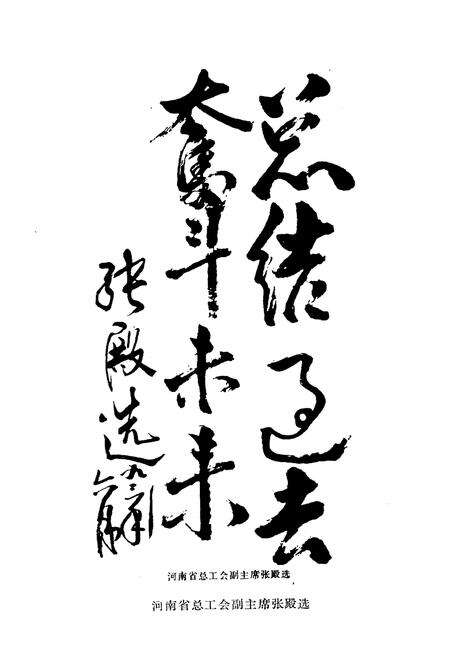 总结过去
奋斗未来
张殿选
九二年
六月
河南省总工会副主席张殿选
河南省总工会副主席张殿选